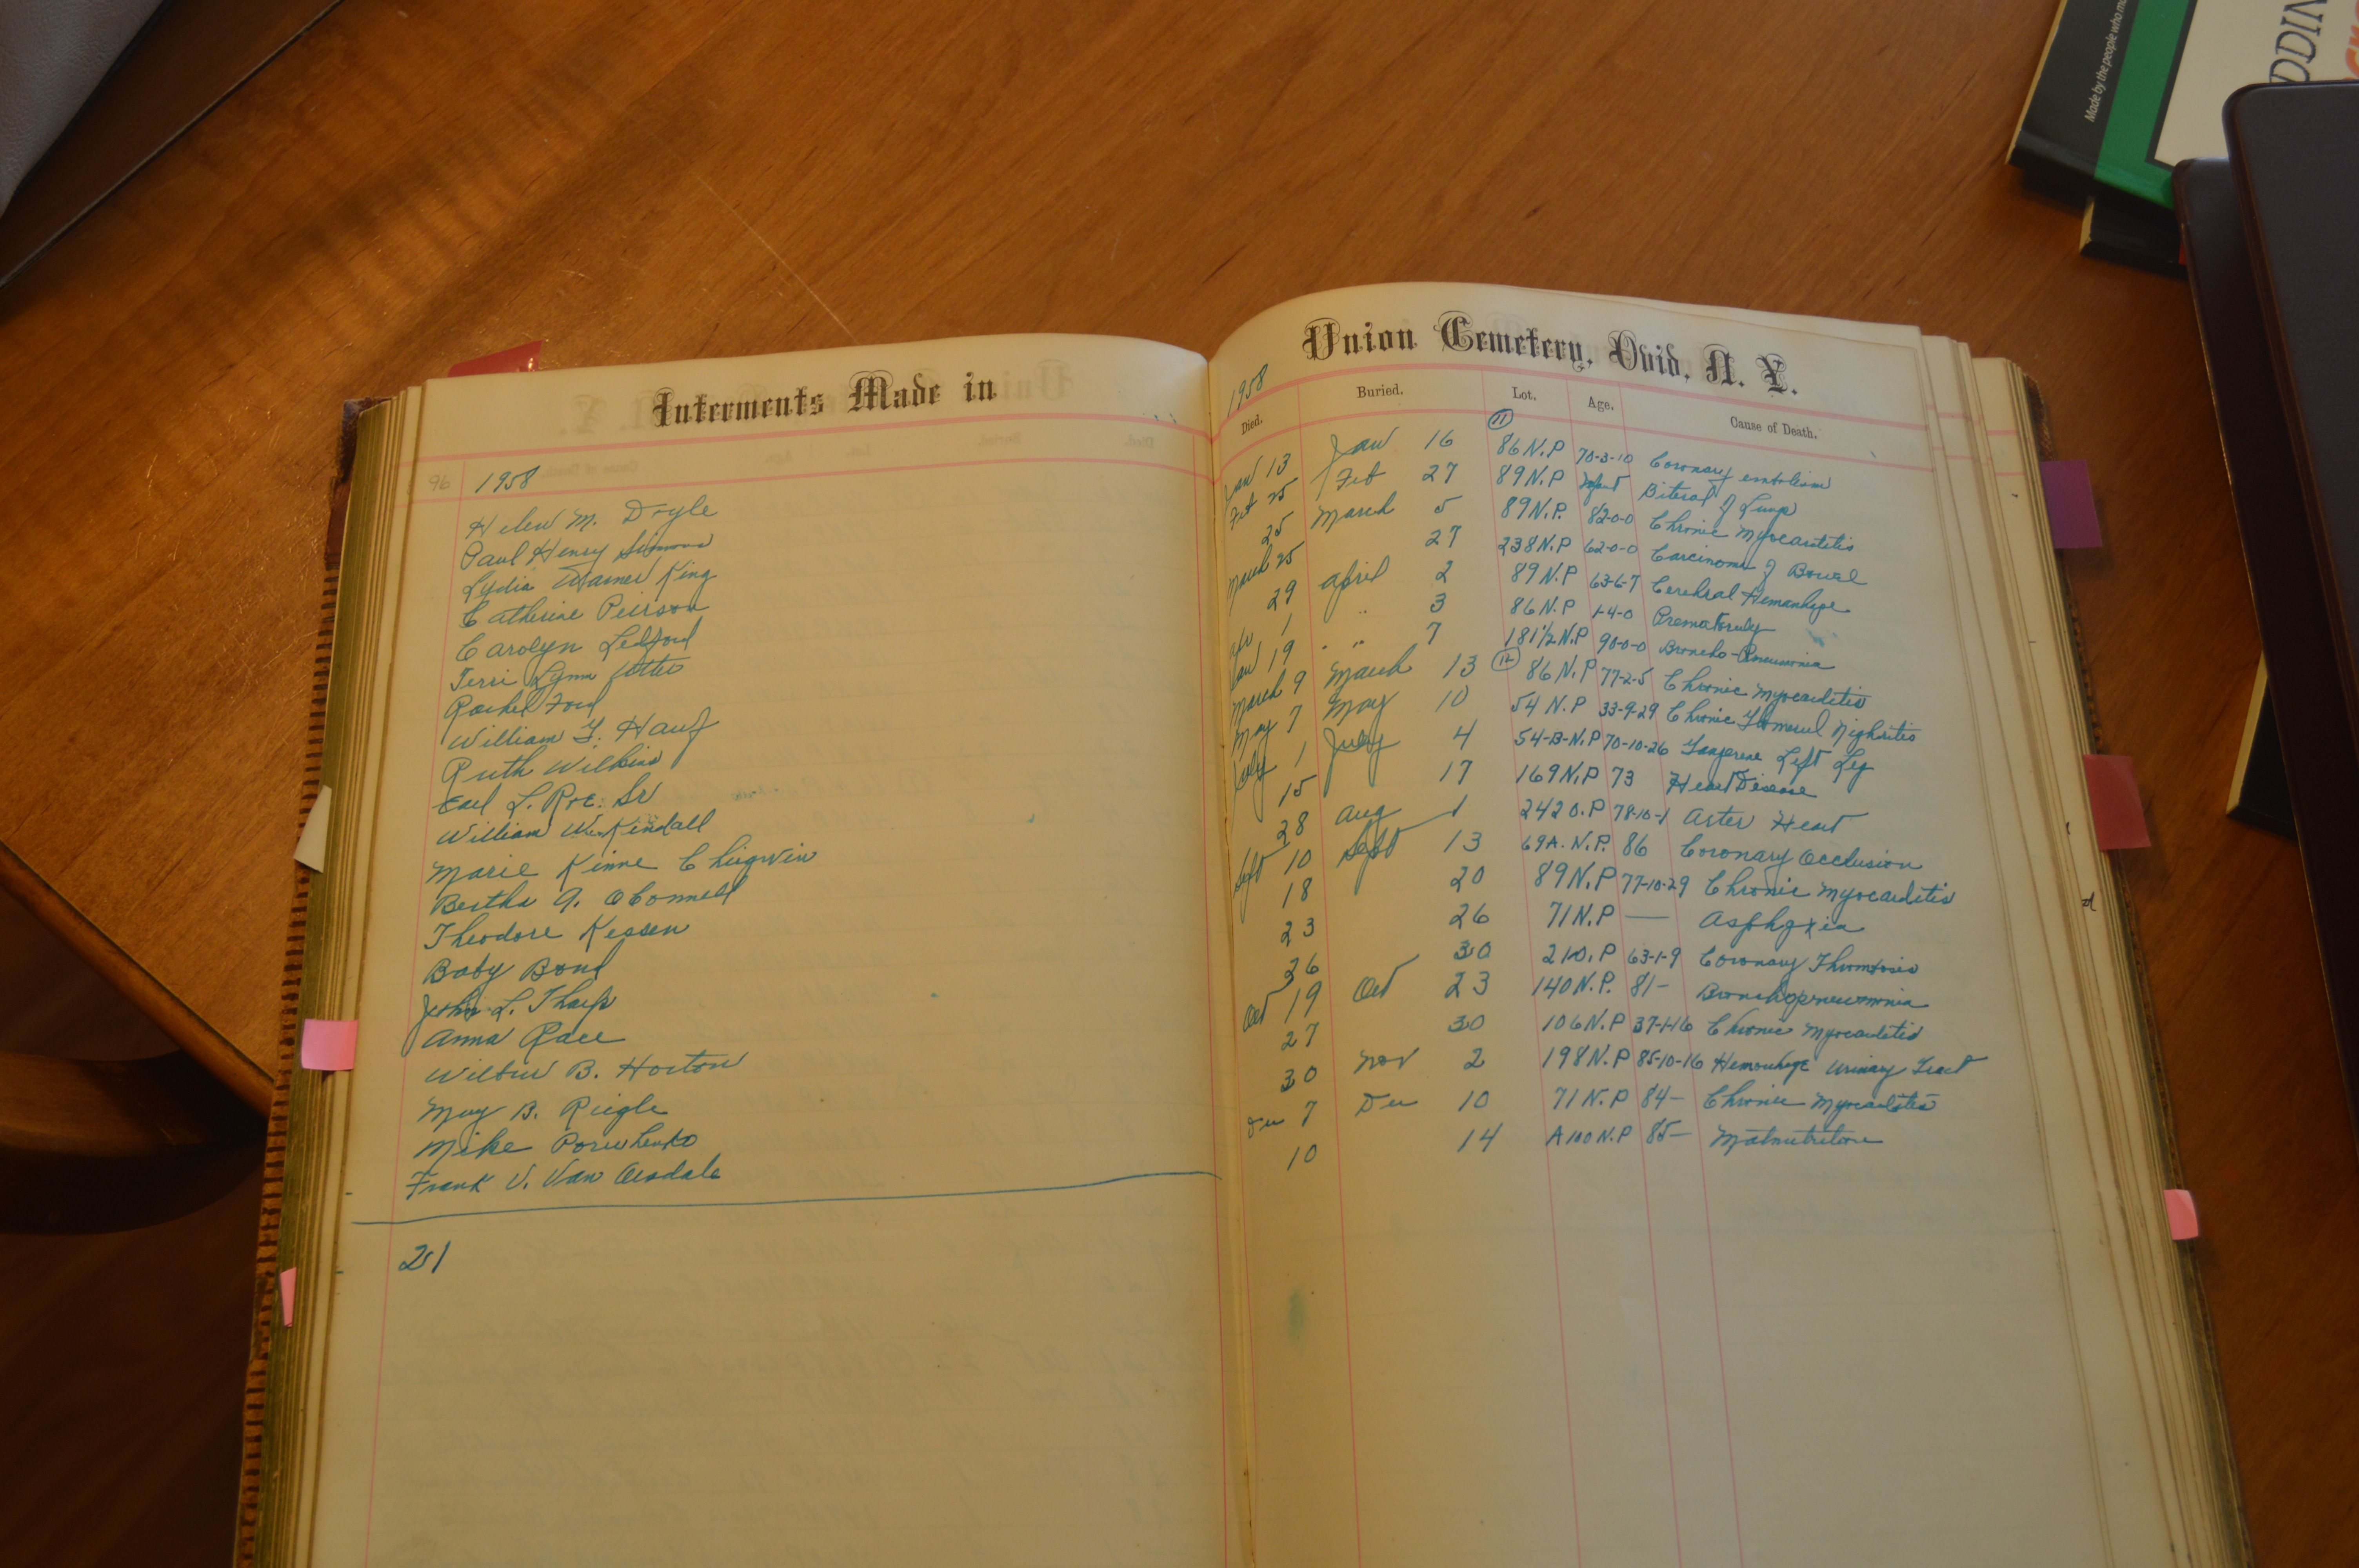 Interments Made in
96 1958
Helen M. Doyle
Paul Henry
Lydia Warner King
Catherine Peirson
Carolyn Ledford
Terri Lynn Potter
Rachel Ford
William F. Hauf
Ruth Wilkins
Earl L. Roe. Sr
William W. Kindall
Marie Kinne Chigwin
Bertha A. OConnell
Theodore Kessen
Baby Bond
John L. Tharp
Anna Race
Wilbur B. Horton
May B. Riegle
Mike
Frank V. Van Arsdale
21
Union Cemetery, Ovid, N. Y.
1958
Died. Buried. Lot. Age. Cause of Death.
Jan 13 Jan 16 11 86 N.P 70-3-10 Coronary embolism
Feb 25 Feb 27 89 N.P Infant of Lungs
25 March 5 89 N.P. 82-0-0 Chronic Myocarditis
March 25 27 238 N.P 62-0-0 Carcinoma of Bowel
29 April 2 89 N.P 63-6-7 Cerebral Hemorrhage
Apr 1 " 3 86 N.P 1-4-0 Prematurity
Jan 19 " 7 181 1/2 N.P 90-0-0 Broncho-Pneumonia
March 9 March 13 12 86 N.P 77-2-5 Chronic Myocarditis
May 7 May 10 54 N.P 33-9-29 Chronic Nephritis
July 1 July 4 54-B-N.P 70-10-26 Gangrene Left Leg
15 17 169 N.P 73 Heart Disease
28 Aug 1 242 O.P 78-10-1 Heart
Sept 10 Sept 13 69A. N.P. 86 Coronary Occlusion
18 20 89 N.P 77-10-29 Chronic Myocarditis
23 26 71 N.P — Asphyxia
26 30 210.P 63-1-9 Coronary Thrombosis
Oct 19 Oct 23 140 N.P. 81- Bronchopneumonia
27 30 106 N.P 37-1-16 Chronic Myocarditis
30 Nov 2 198 N.P 85-10-16 Hemorrhage Urinary Tract
Dec 7 Dec 10 71 N.P 84- Chronic Myocarditis
10 14 A100 N.P 85- Malnutrition
Made by the people who
DDIN